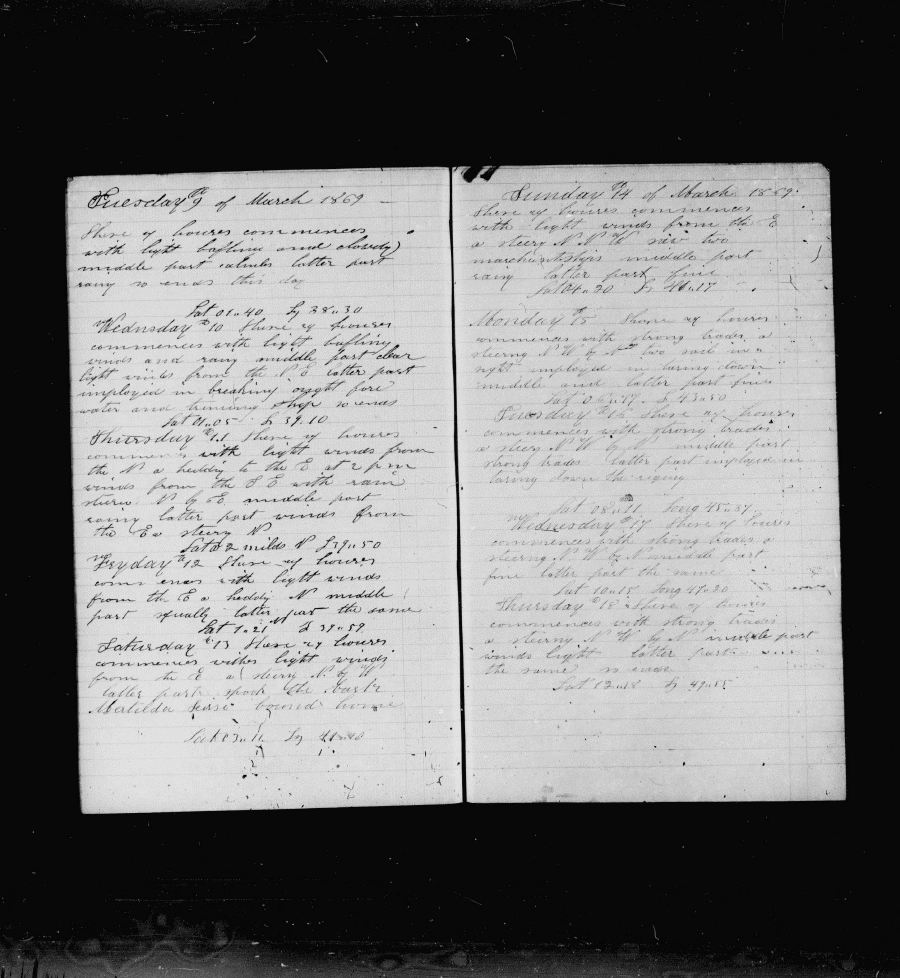 Tuesday th 9 of March 1869
these 24 houres commences
with light bafling and clowdy
middle part calmes latter part
rainy so ends this day
Lat 01"40 Lg 38"30
Wednsday th 10 these 24 houres
commences with light bafling
winds and rainy middle part clear
light winds from the N E latter part
imployed in breaking ought fore
water and triming ship so ends
Lat 01"05 Lg 39"10
Thursday th 11 these 24 houres
commences with light winds from
the N a hedding to the E at 2 pm
winds from the S E with rain
steering N by E middle part
rainy latter part winds from
the E a steering N
Lat 02 milds N Lg 39"50
Fryday th 12 these 24 houres
comences with light winds
from the E a hedding N middle
part squally latter part the same
Lat 1"21 N Lg 39"59
Saturday th 13 these 24 houres
commences withe light winds
from the E a steering N by W
latter part spook the bark
Matilda bound home
Lat 03"11 Lg 41"40
Sunday th 14 of March 1869
these 24 houres commences
with light winds from the E
a steering N N W saw two
marchantships middle part
rainy latter part fine
Lat 04"20 Lg 41"17
Monday th 15 these 24 houres
commences with strong trades a
steering N W by N two sail in
sight imployed in taring down
middle and latter part fine
Lat 06"17 Lg 43"50
Tuesday th 16 these 24 houres
commences with strong trades
a steering N W by N middle part
strong trades latter part imployed in
taring down the riging
Lat 08"11 Long 45"57
Wednesday th 17 these 24 houres
commences with strong trades a
steering N W by N middle part
fine latter part the same
Lat 10"18 Long 47"20
Thursday th 18 these 24 houres
commences with strong trades
a steering N W by N middle part
winds light latter part
the same so ends
Lat 12"18 Lg 49"55